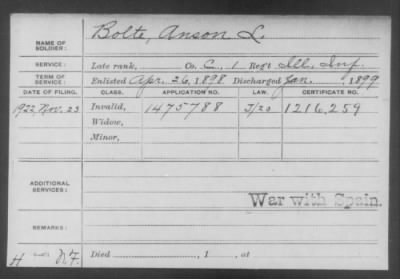 Bolte, Anson L.
NAME OF SOLDIER:
SERVICE: Late rank, Co. C, 1 Reg't Ill. Inf.
TERM OF SERVICE: Enlisted Apr. 26, 1898 Discharged Jan. , 1899
DATE OF FILING. CLASS. APPLICATION NO. LAW. CERTIFICATE NO.
1922 Nov. 23 Invalid, 1475788 1216,259
Widow,
Minor,
ADDITIONAL SERVICES:
War with Spain.
REMARKS:
Died , 1 , at